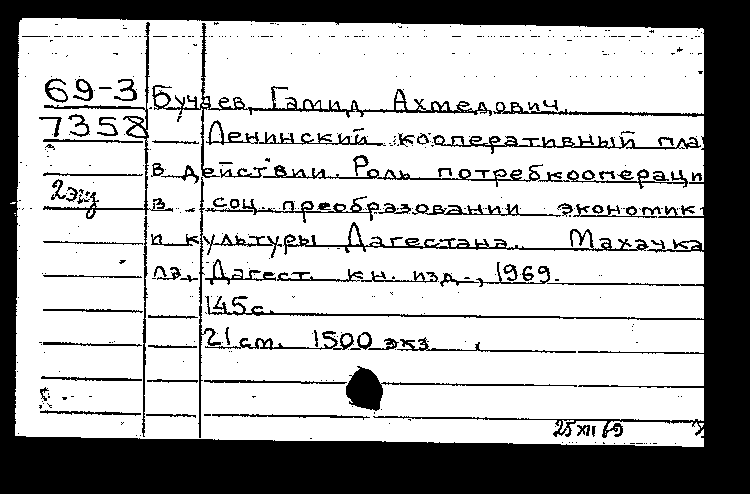 69-3 Бучаев, Гамид Ахмедович.
7358 Ленинский кооперативный пла
в действии. Роль потребкоопераци
2 экз в соц. преобразовании экономик
и культуры Дагестана. Махачка
ла, Дагест. кн. изд-, 1969.
145 с.
21 см. 1500 экз.
25 XII 69